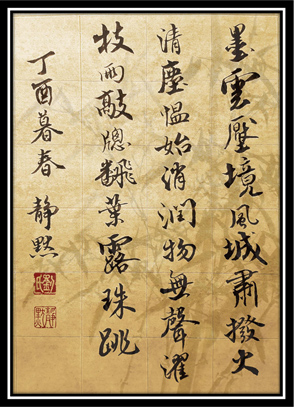 墨雲壓境風城肅撥火
清塵愠始消潤物無聲濯
枝雨敲牕飜葉露珠跳
丁酉暮春 靜默